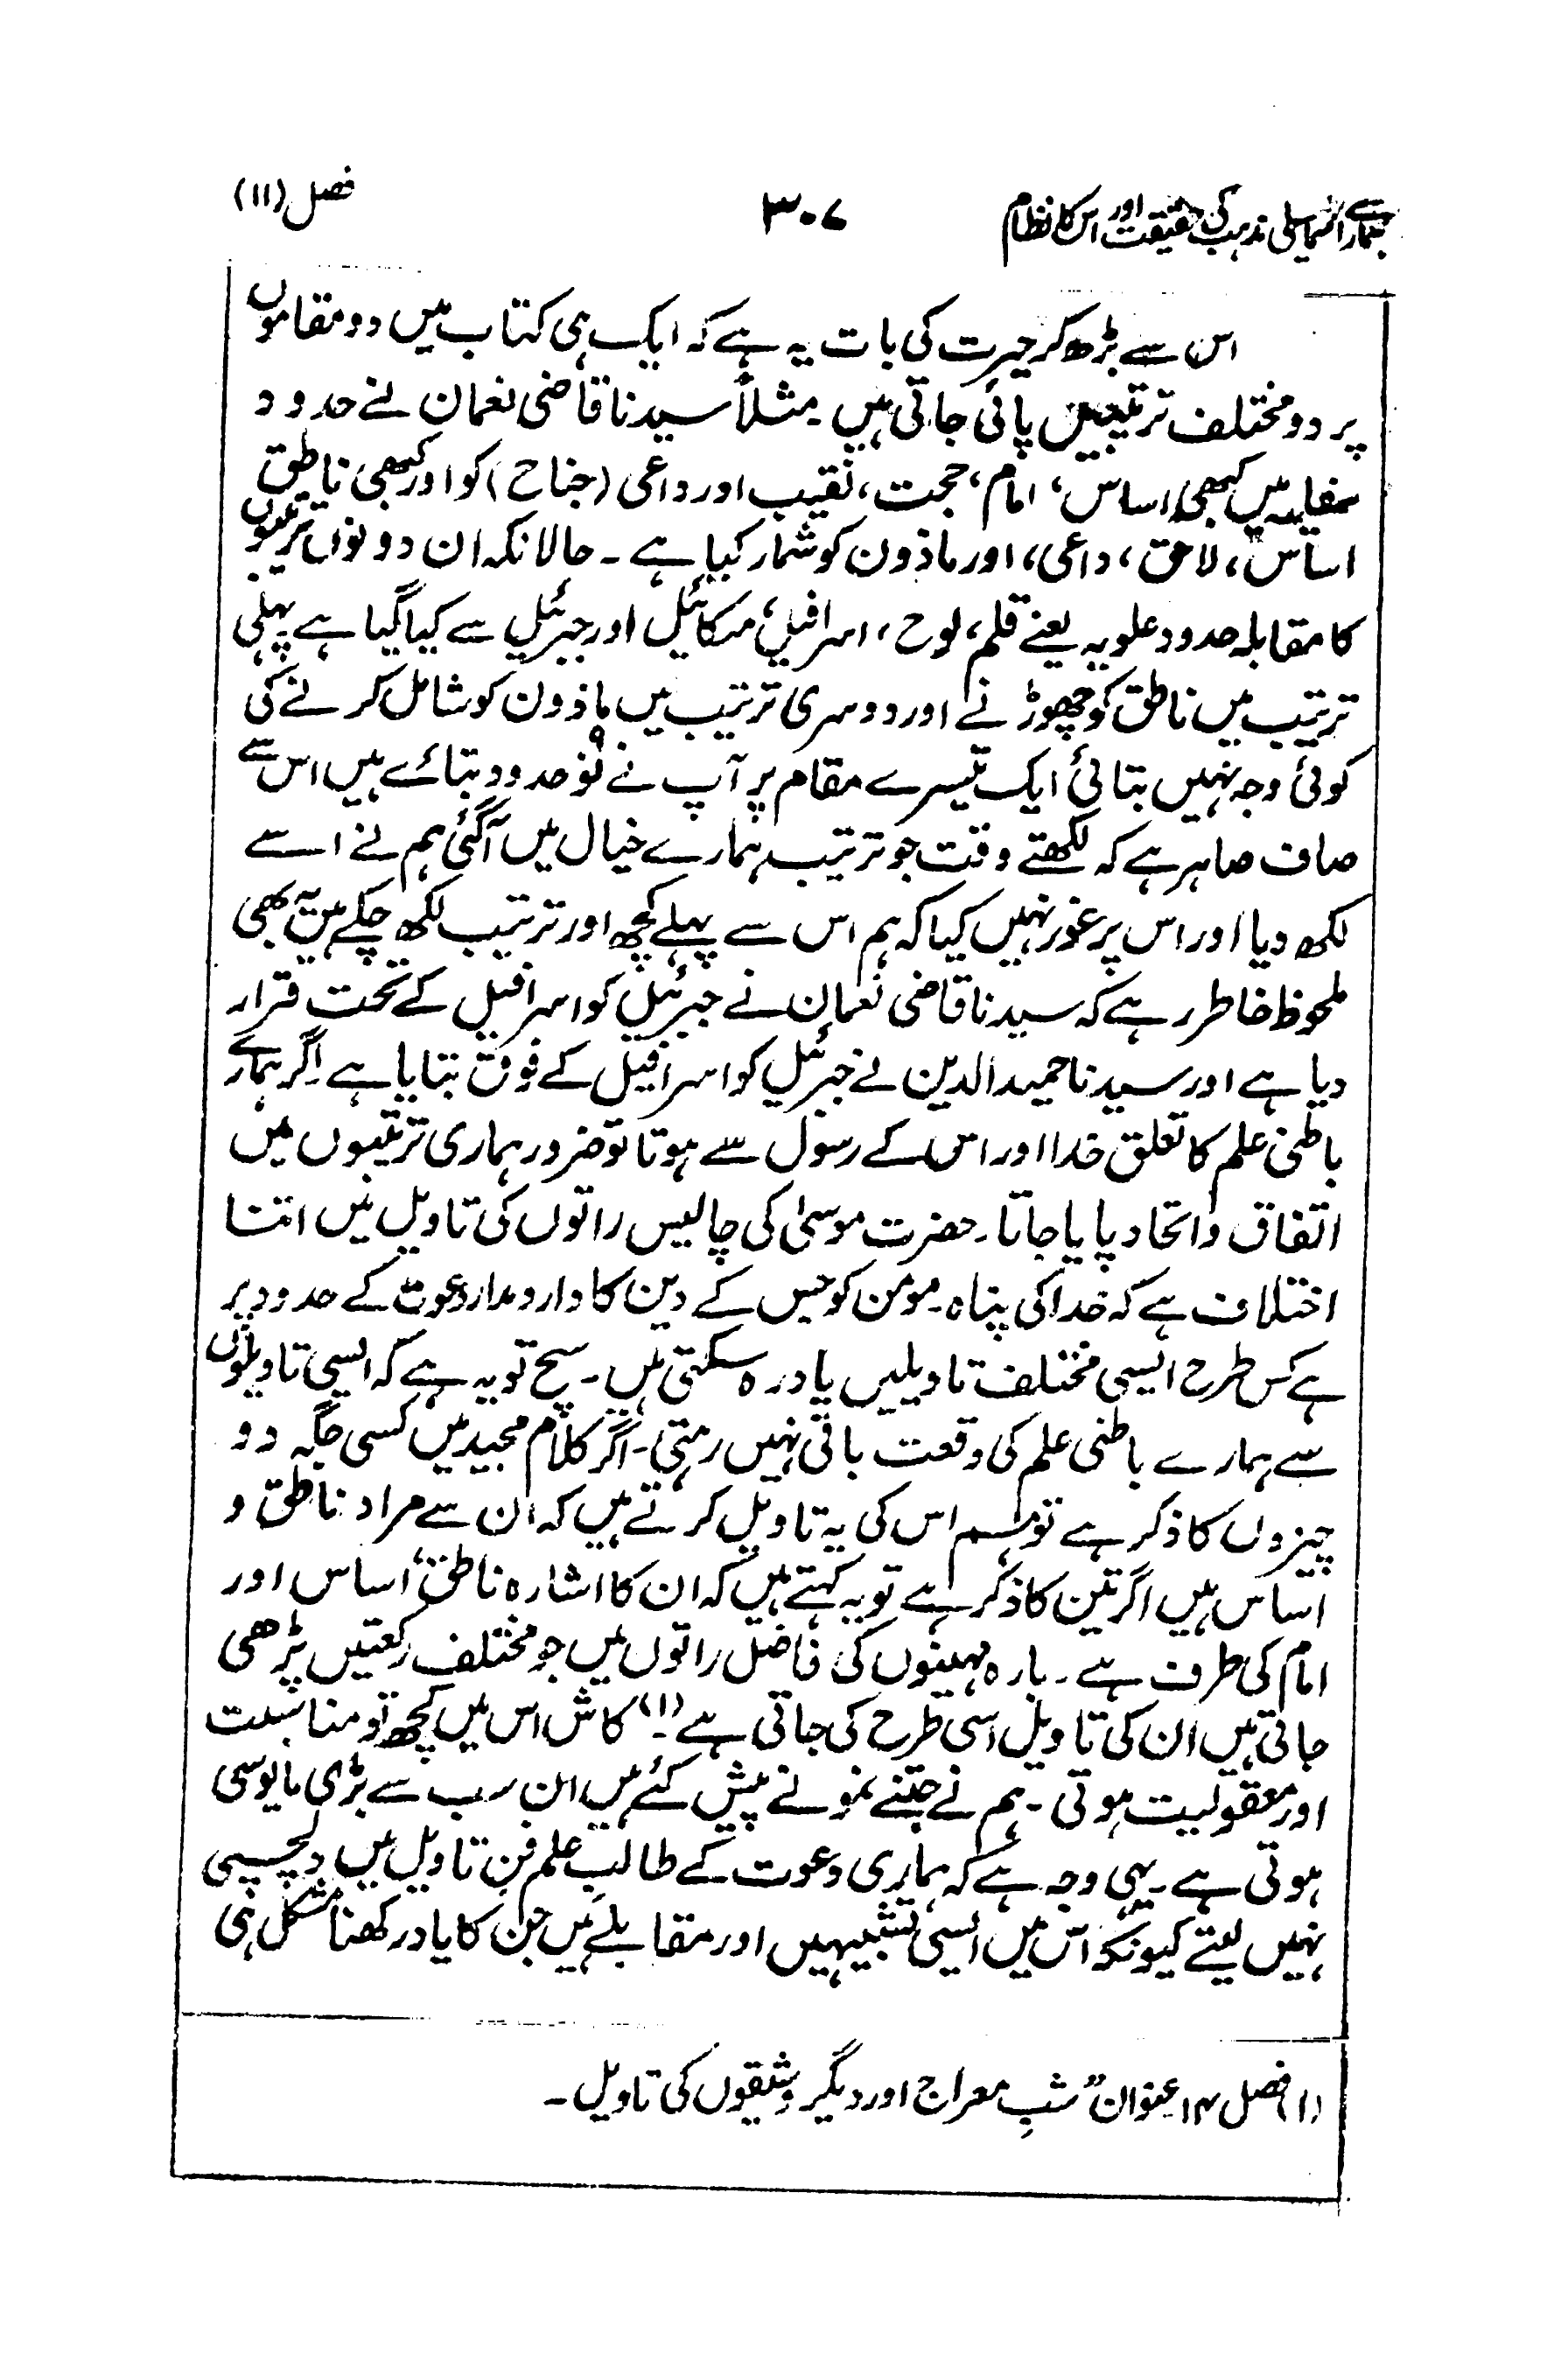 ہمارے اسماعیلی مذہب کی حقیقت اور اس کا نظام
۳۰۷
فصل (۱۱)
اس سے بڑھ کر حیرت کی بات یہ ہے کہ ایک ہی کتاب میں دو مقاموں
پر دو مختلف ترتیبیں پائی جاتی ہیں ۔ مثلاً سیدنا قاضی نعمان نے حدود
سفلیہ میں کبھی اساس، امام، حجت، نقیب اور داعی (جناح) کو اور کبھی ناطق
اساس، لاحق، داعی، اور ماذون کو شمار کیا ہے ۔ حالانکہ ان دونوں ترتیبوں
کا مقابلہ حدود علویہ یعنے قلم، لوح، اسرافیل، میکائیل اور جبرئیل سے کیا گیا ہے پہلی
ترتیب میں ناطق کو چھوڑنے اور دوسری ترتیب میں ماذون کو شامل کرنے کی
کوئی وجہ نہیں بتائی ایک تیسرے مقام پر آپ نے نو ۹ حدود بتائے ہیں اس سے
صاف ظاہر ہے کہ لکھتے وقت جو ترتیب ہمارے خیال میں آگئی ہم نے اسے
لکھ دیا اور اس پر غور نہیں کیا کہ ہم اس سے پہلے کچھ اور ترتیب لکھ چکے ہیں یہ بھی
ملحوظ خاطر رہے کہ سیدنا قاضی نعمان نے جبرئیل کو اسرافیل کے تحت قرار
دیا ہے اور سیدنا حمید الدین نے جبرئیل کو اسرافیل کے فوق بتایا ہے ۔ اگر ہمارے
باطنی علم کا تعلق خدا اور اس کے رسول سے ہوتا تو ضرور ہماری ترتیبوں میں
اتفاق و اتحاد پایا جاتا ۔ حضرت موسیٰ کی چالیس راتوں کی تاویل میں اتنا
اختلاف ہے کہ خدا کی پناہ ۔ مومن کو جس کے دین کا دار و مدار دعوت کے حدود پر
ہے کس طرح ایسی مختلف تاویلیں یاد رہ سکتی ہیں ۔ سچ تو یہ ہے کہ ایسی تاویلوں
سے ہمارے باطنی علم کی وقعت باقی نہیں رہتی ۔ اگر کلام مجید میں کسی جگہ دو
چیزوں کا ذکر ہے تو ہم اس کی یہ تاویل کرتے ہیں کہ ان سے مراد ناطق و
اساس ہیں اگر تین کا ذکر ہے تو یہ کہتے ہیں کہ ان کا اشارہ ناطق، اساس اور
امام کی طرف ہے ۔ بارہ مہینوں کی فاضل راتوں میں جو مختلف رکعتیں پڑھی
جاتی ہیں ان کی تاویل اسی طرح کی جاتی ہے (۱) ۔ کاش اس میں کچھ تو مناسبت
اور معقولیت ہوتی ۔ ہم نے جتنے نمونے پیش کئے ہیں ان سب سے بڑی مایوسی
ہوتی ہے ۔ یہی وجہ ہے کہ ہماری دعوت کے طالب علم فن تاویل میں دلچسپی
نہیں لیتے کیونکہ اس میں ایسی تشبیہیں اور مقابلے ہیں جن کا یاد رکھنا مشکل ہی
(۱) فصل ۱۴ عنوان "شبِ معراج اور دیگر وثیقوں کی تاویل ۔